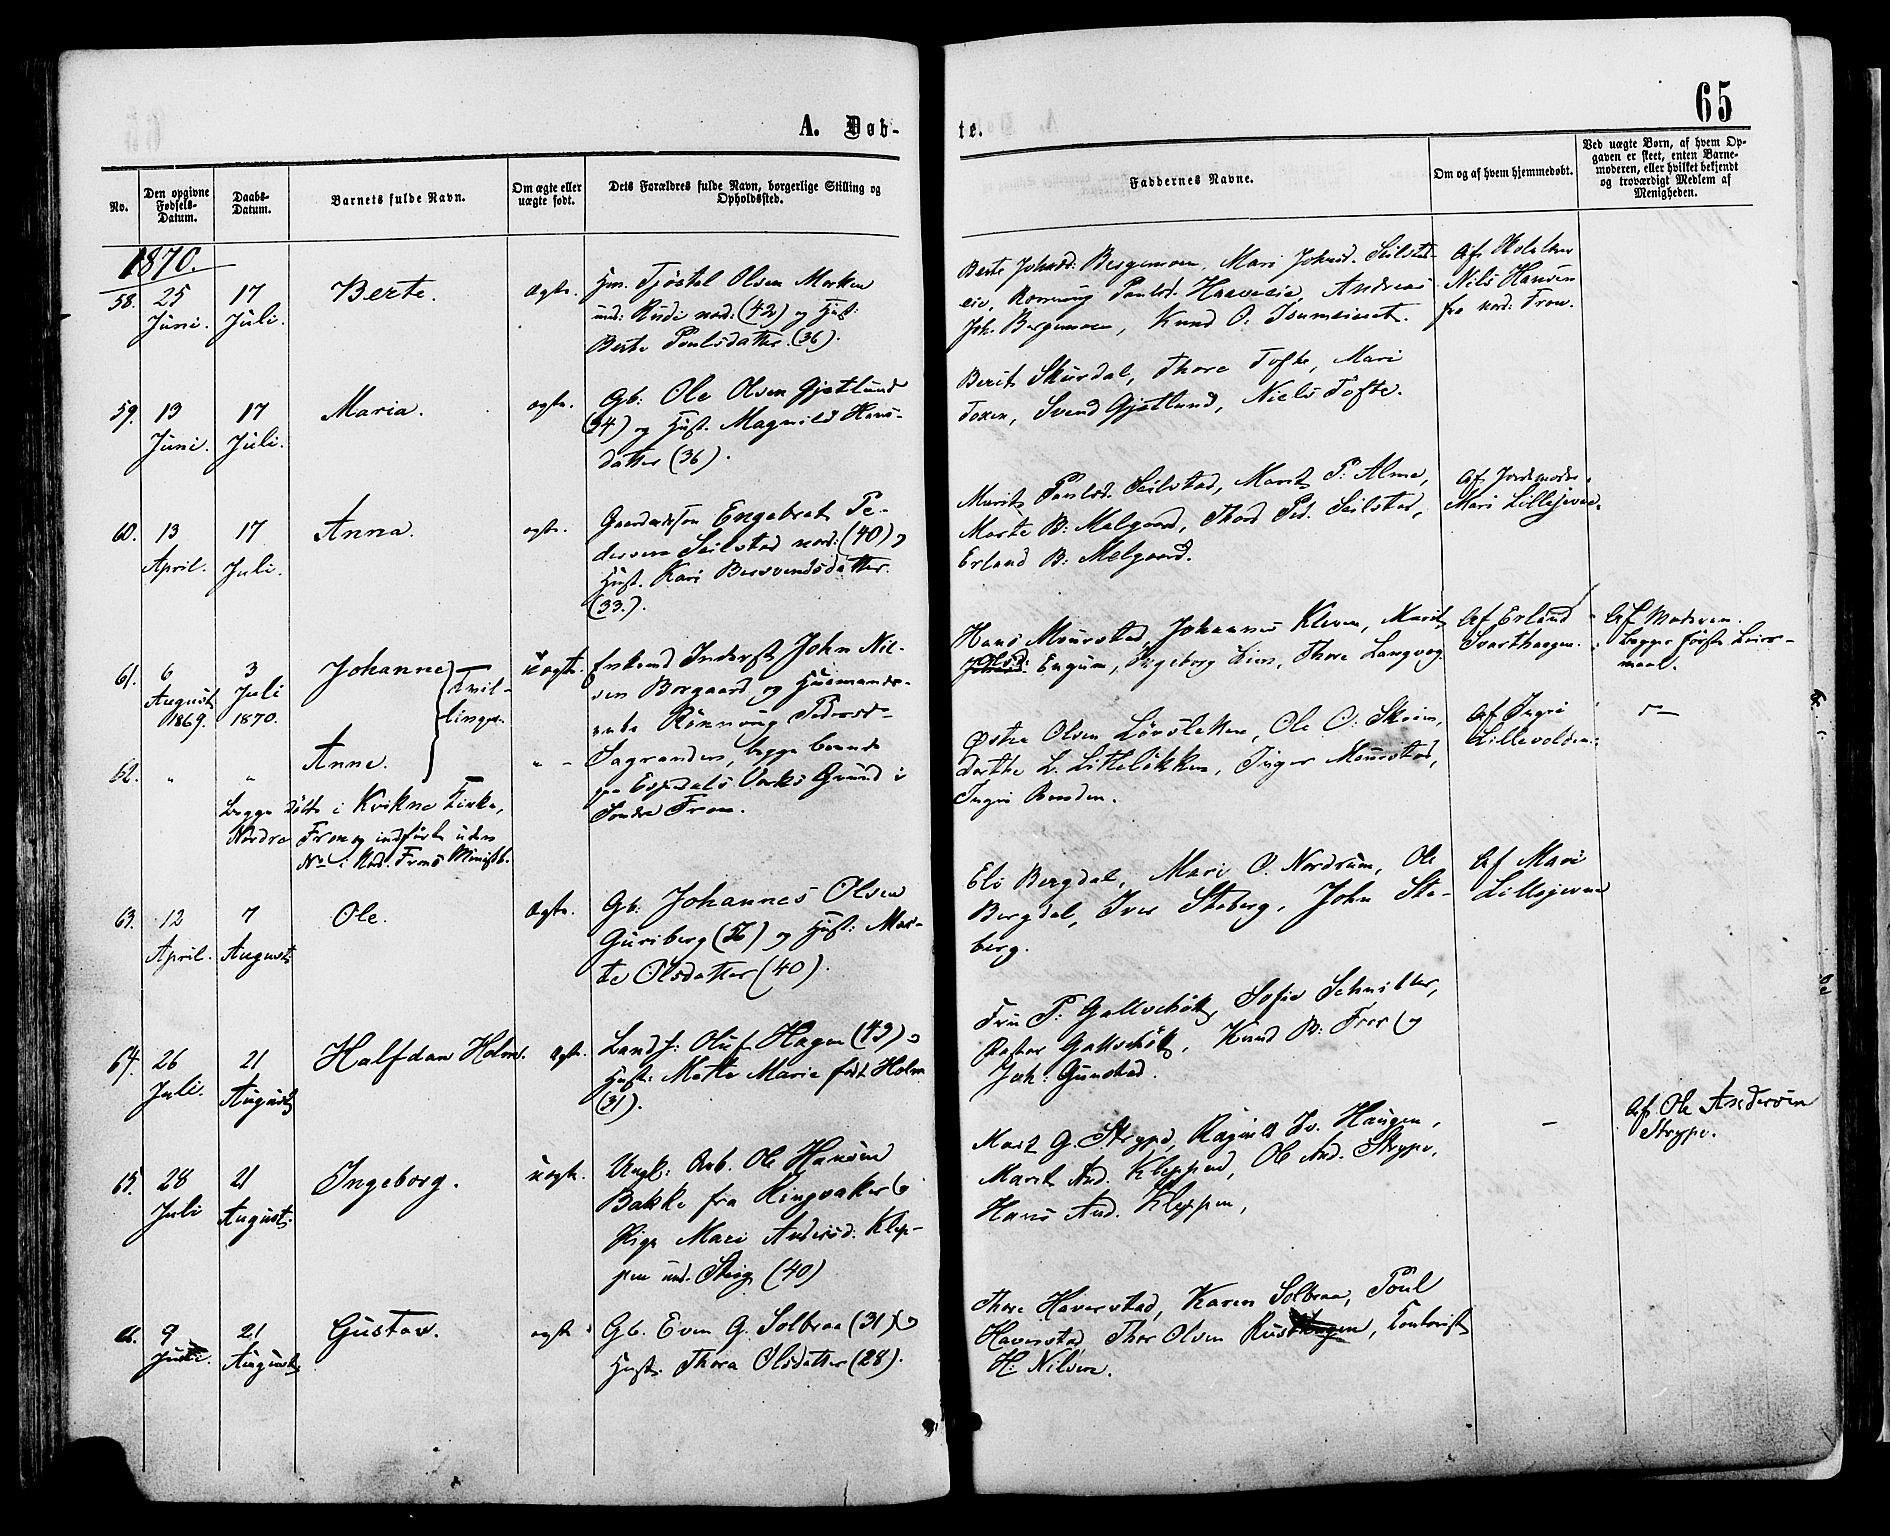 65
A. Døb-
te.
No.
Den opgivne
Fødsels-
Datum.
Daabs-
Datum.
Barnets fulde Navn.
Om ægte eller
uægte født.
Dets Forældres fulde Navn, borgerlige Stilling og
Opholdssted.
Faddernes Navne.
Om og af hvem hjemmedøbt.
Ved uægte Børn, af hvem Op-
gaven er skeet, enten Barne-
moderen, eller hvilket bekjendt
og troværdigt Medlem af
Menigheden.
1870.
58.
25
Juni.
17
Juli.
Berte.
Ægte.
Hm. Tjøstel Olsen Morken
und: Rudi nord: (42) og Hust:
Berte Poulsdatter. (36).
Berte Johnsd: Bergemoen, Mari Johnsd. Seilstad-
eie, Ronnaug Paulsd. Haaveeie, Andreas
Joh. Bergemoen, Knud O:
Af
Nils Hansen
fra nord: Fron.
59.
13
Juni.
17
Juli.
Maria.
ægte.
Gb: Ole Olsen Gjetlund
(34) og Hust. Magnild Hans-
datter (36).
Berit Skurdal, Thore Tofte, Mari
Toxen, Svend Gjetlund, Niels Tofte.
60.
13
April.
17
Juli.
Anna.
ægte.
Engebret Pe-
dersen Seilstad nord: (40) og
Hust. Kari Bersvendsdatter.
(33.).
Marit Paulsd. Seilstad, Marit P: Alme,
Marte B: Melgaard, Thord Ped. Seilstad,
Erland B: Melgaard.
Af Jordemoder
Mari Lillejevne.
61.
6
August
1869.
3
Juli
1870.
Johanne
Tvil-
linger
uægte.
Enkemd Inderst John Nil-
sen Borgaard og Husmands-
enke Rønnaug Pedersd-
Sagranden, begge boende
pa Espedals Verks Grund i
Søndre Fron.
Hans Mourstad, Johannes Kleven, Marit
Olsd: Engum, Ingeborg Lien, Thore Langvog
Af Erland
Svarthaugen.
Af Moderen.
Begges første Leier-
maal.
62.
"
"
Anne.
" -
Østen Olsen Lørsletten, Ole O: Skoien,
Dorthe L. Litleløkken, Inger Mourstad,
Ingri Randen.
Af Ingri
Lillevolden.
Begge døbte i Kvikne Kirke,
Nordre Fron og indførte uden
No i Nord. Frons Ministb.
63.
12
April.
7
August
Ole.
Ægte.
Gb: Johannes Olsen
Guriberg (56) og Hust: Mar-
te Olsdatter (40).
Eli Bergdal, Mari O. Nordrum, Ole
Bergdal, Iver Staberg, John Sta-
berg.
Af Mari
Lillejevne
64.
26
Juli.
21
August
Halfdan Holm.
ægte.
Landh: Oluf Hagen (43) og
Hust: Mette Marie født Holm
(31).
Fru P: Gallschøtt, Sofie Schnitler,
Pastor Gallschøtt, Knud B: Fross og
Joh: Gunstad.
65.
28
Juli
21
August:
Ingeborg.
uægte.
Ungk: Arb. Ole Hansen
Bakke fra Ringsaker og
Pige Mari Andersd. Klep-
pen und. Steig (40)
Marit G. Strype, Ragnild Iv. Haugen,
Marit And. Kleppen, Ole And. Strype,
Hans And. Kleppen,
-
Af Ole Andersen
Strype.
66.
9
Juli.
21
August
Gustav.
ægte
Gb. Even G. Solbraa (31) og
Hust: Thora Olsdatter (28).
Thore Haverstad, Karen Solbraa, Poul
Haverstad, Thor Olsen Rusthaugen, Kontorist
H: Nilsen.